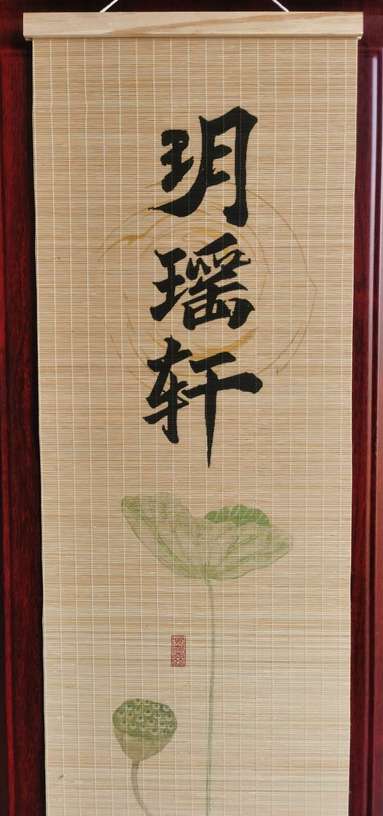 玥瑶轩